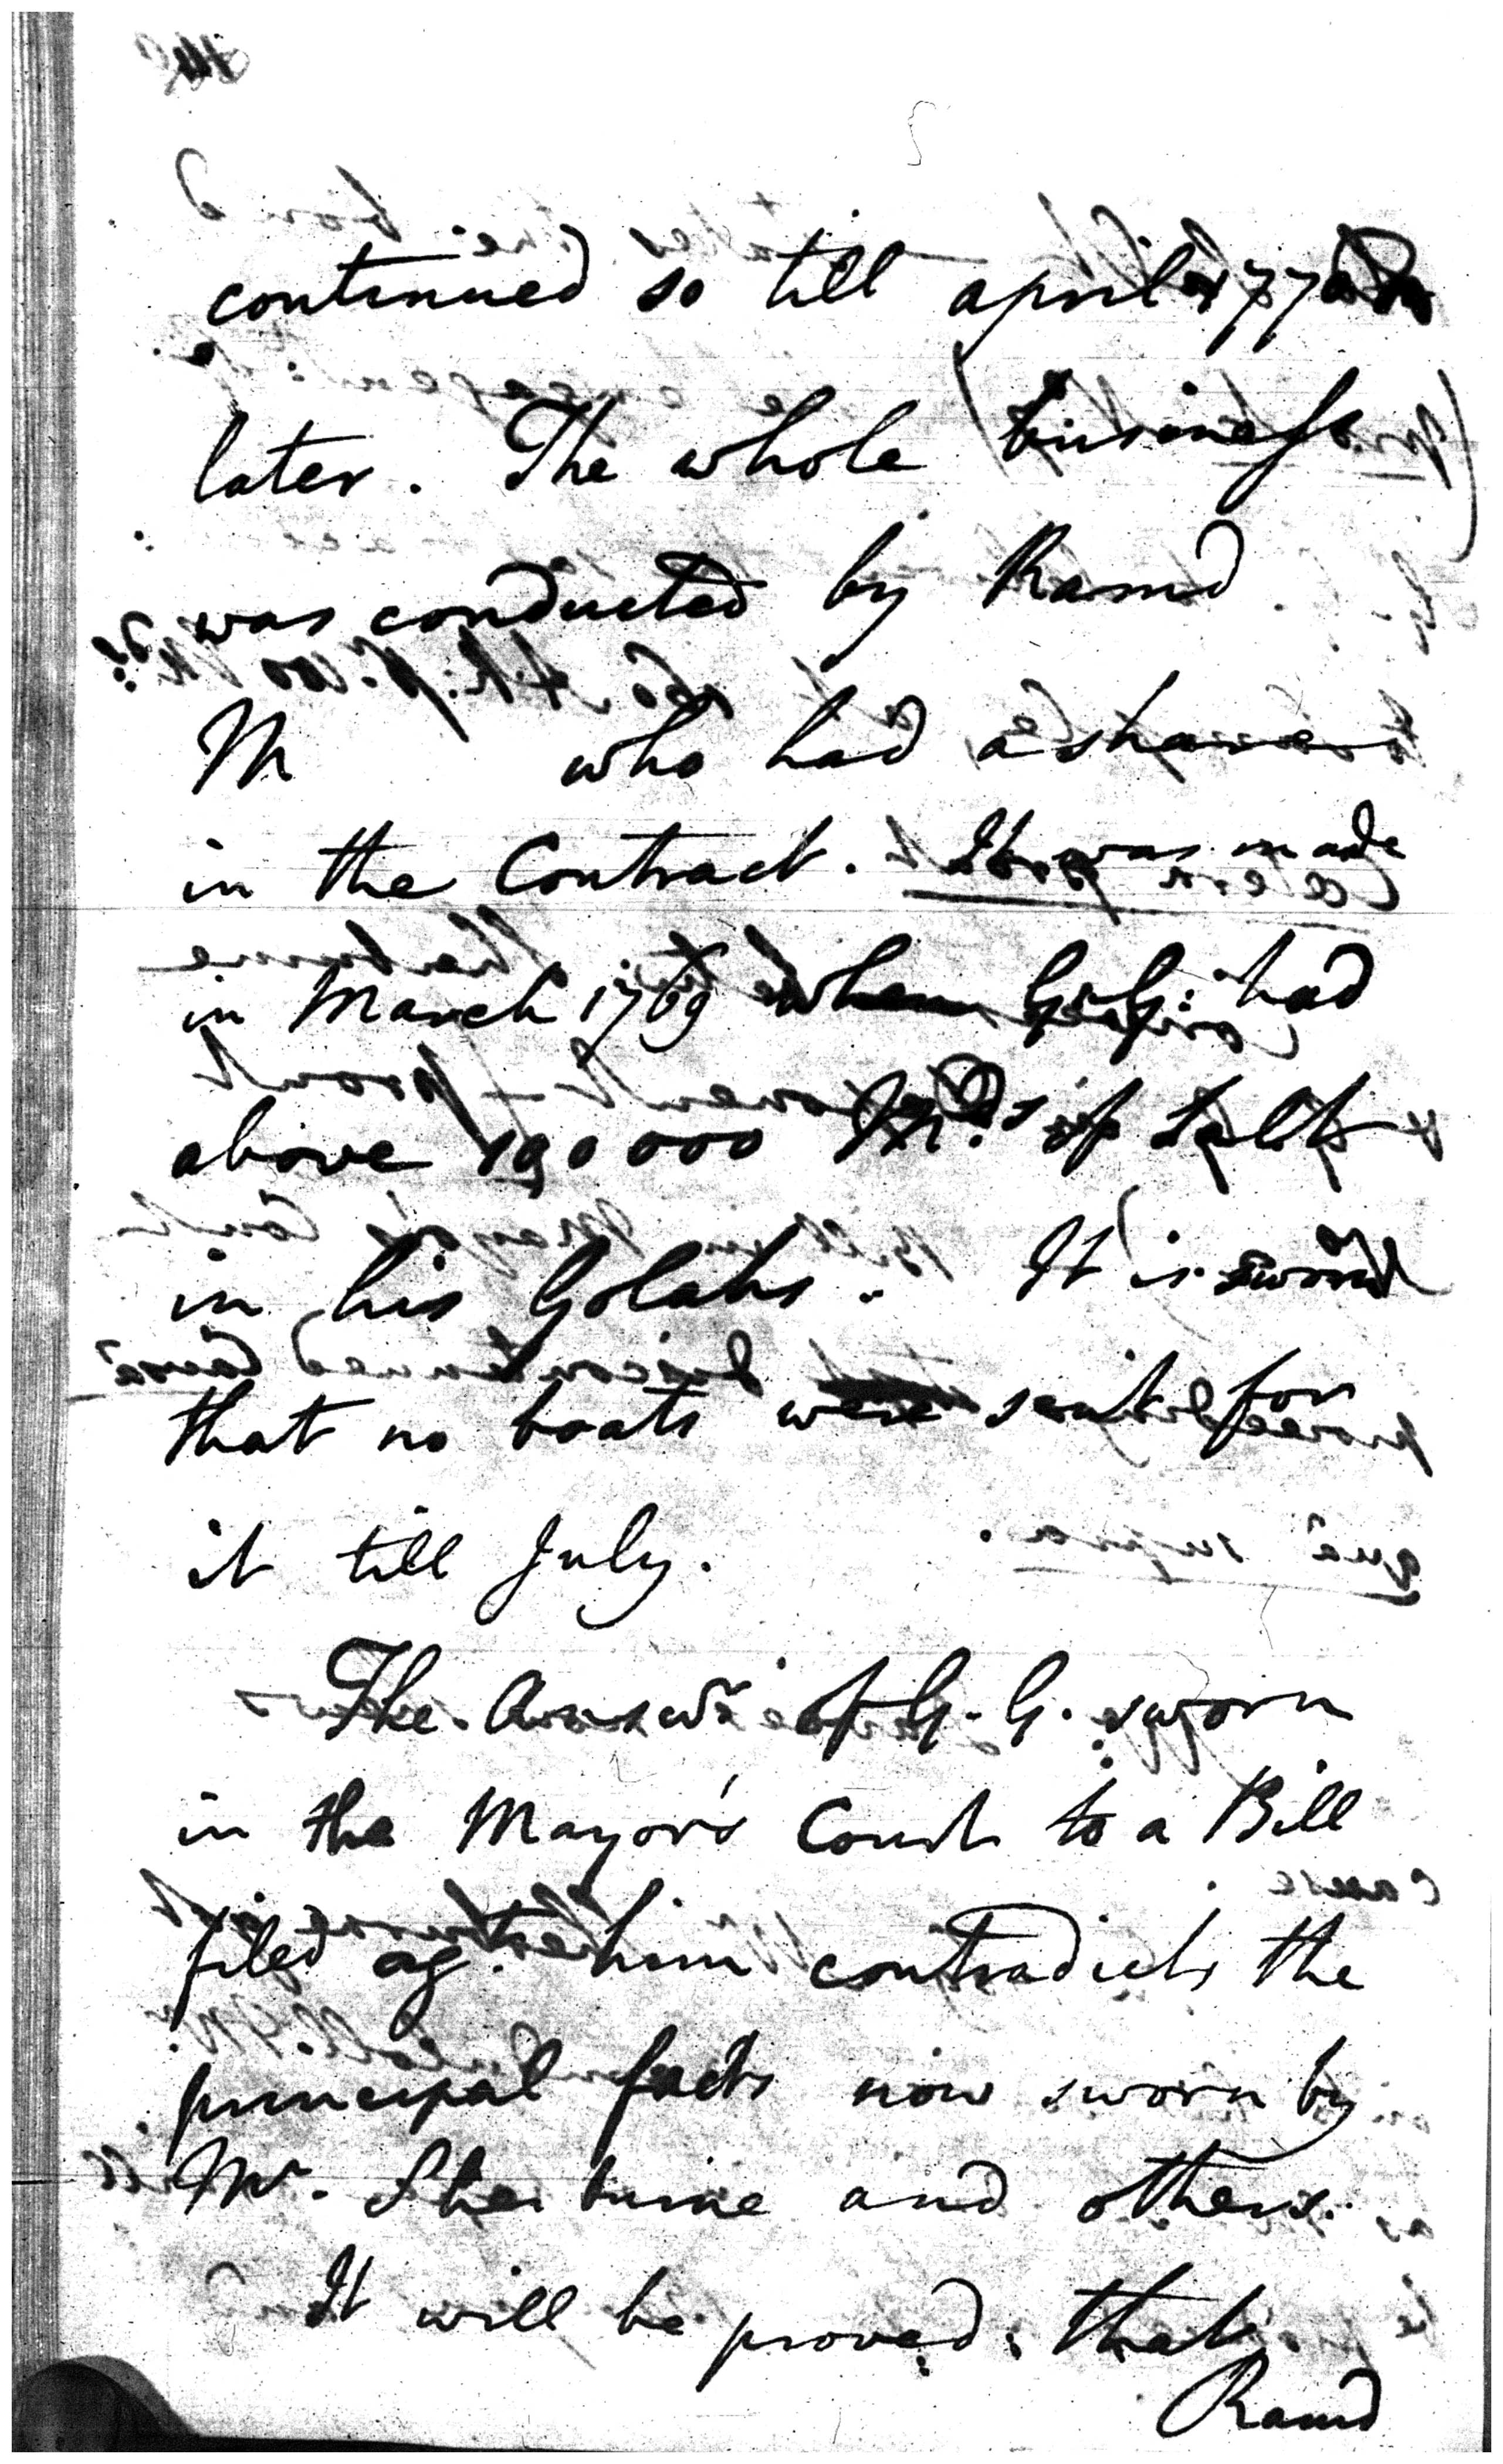 continued so till april 177
later. The whole business
was conducted by Ramd
M who had a share
in the Contract. It was made
in March 1769 when G. G: had
above 190000 Mds of Salt
in his Golahs. It is sworn
that no boats were sent for
it till July.
The Answr of G. G. sworn
in the Mayor's Court to a Bill
filed agt him contradicts the
principal facts now sworn by
Mr. Sherburne and others.
It will be proved, that
Ramd